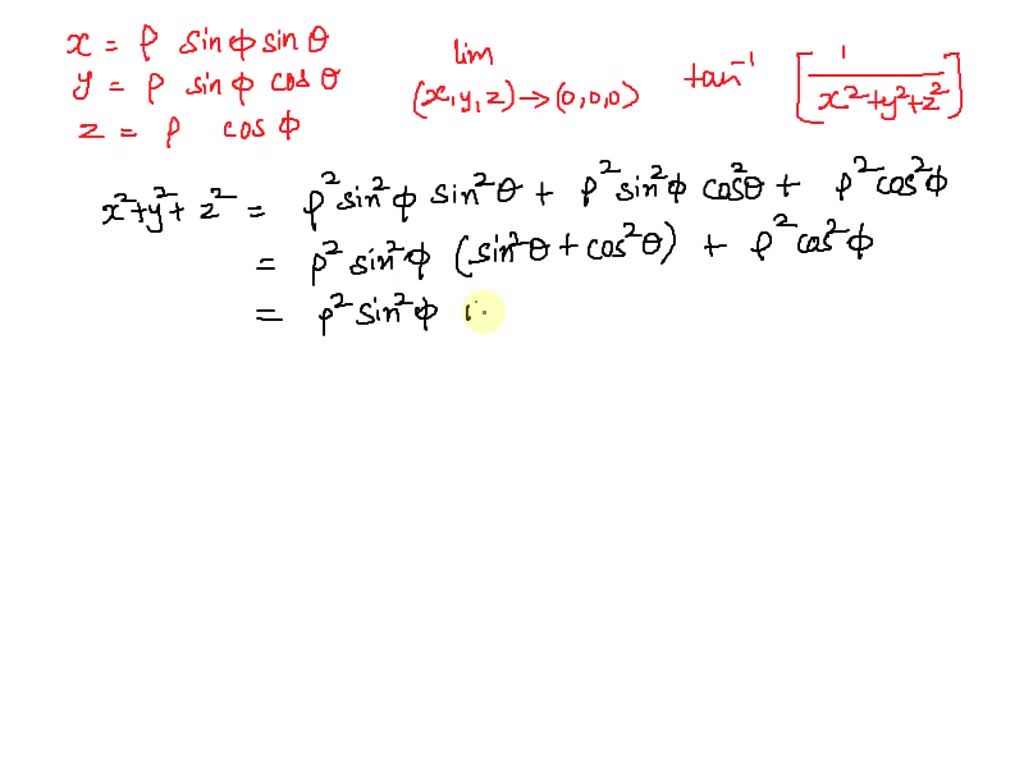 x = ρ sinϕ sinθ
y = ρ sinϕ cosθ
z = ρ cosϕ
lim (x,y,z)→(0,0,0) tan⁻¹ [1/(x²+y²+z²)]
x²+y²+z² = ρ²sin²ϕ sin²θ + ρ²sin²ϕ cos²θ + ρ²cos²ϕ
= ρ²sin²ϕ (sin²θ + cos²θ) + ρ²cos²ϕ
= ρ²sin²ϕ